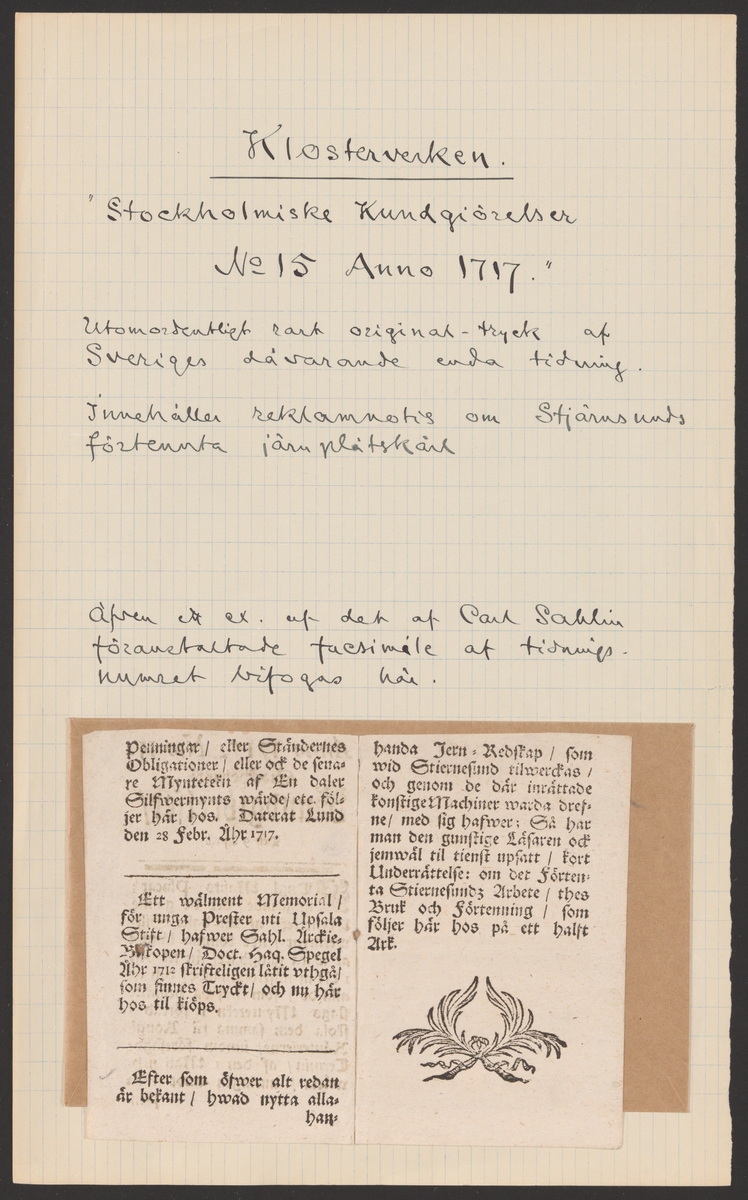 Klosterverken.
"Stockholmiske Kundgiörelser
No 15 Anno 1717."
Utomordentligt rart original-tryck af
Sveriges dåvarande enda tidning.
Innehåller reklamnotis om Stjärnsunds
förtennta järnplåtskärl
Äfven ett ex. af det af Carl Sahlin
föranstaltade facsimile af tidnings-
numret bifogas här.
Penningar / eller Ständernes
Obligationer / eller ock de sena-
re Myntetekn af En daler
Silfwermynts wärde/ etc. föl-
jer här hos. Daterat Lund
den 28 Febr. Åhr 1717.
Ett wälment Memorial /
för unga Prester uti Upsala
Stift / hafwer Sahl. Ärckie-
Biskopen / Doct. Haq. Spegel
Åhr 1712 skrifteligen låtit vthgå/
som finnes Tryckt/ och nu här
hos til kiöps.
Efter som öfwer alt redan
är bekant / hwad nytta alla-
han-
handa Jern-Redskap / som
wid Stiernesund tilwerckas /
och genom de där inrättade
konstige Machiner warda dref-
ne/ med sig hafwer; Så har
man den gunstige Läsaren ock
jemwäl til tienst upsatt / kort
Underrättelse: om det Förten-
ta Stiernesundz Arbete / thes
Bruk och Förtenning / som
följer här hos på ett halft
Ark.